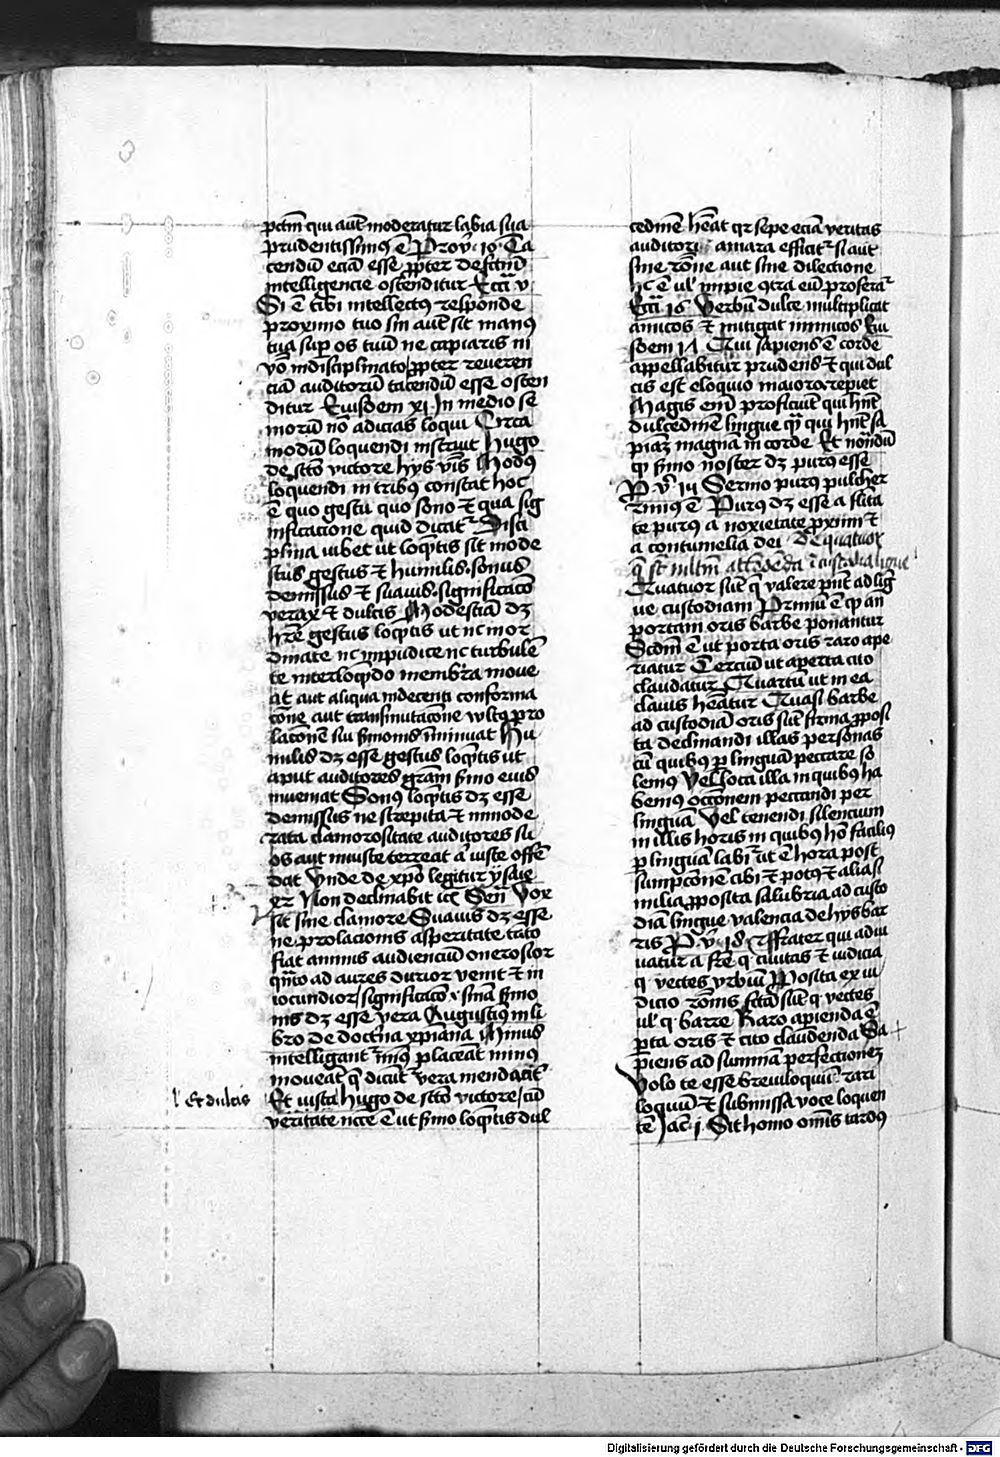 pctm̄ qui aut̄ moderatur labia sua
prudentissimꝯ ē Prov̄ · 19 · Ta
cendū eciā esse ꝓpter defctm̄
intelligencie ostenditur Ecci v
Si ē tibi intellectꝯ responde
proximo tuo sin aut̄ sit manꝯ
tua suꝑ os tuū ne capiaris in
v̄o indisciplinato ꝓpter reveren
ciā auditorū tacendū esse osten
ditur Eiusdem xi · In medio se
morū nō adicias loqui Circa
modū loquendi instruit hugo
de sctō victore hijs v̄is Modꝯ
loquendi in tribꝯ constat hoc
ē quo gestu quo sono et qua sig
nificacione quid dicat᷑ Disci
plina iubet ut loq̄ntis sit mode
stus gestus et humilis · sonus
demissus et suavis · significacō
verax et dulcis Modestiā dꝫ
hr̄e gestus loq̄ntis ut nc̄ inor
dinate nc̄ impudice nc̄ turbulē
te int̄loq̄ndo membra move
at aut aliqua indecenti conforma
cōne aut transmutacōne vltꝯ pro
lacōnē sui s̄monis īminuat Hu
milis dꝫ esse gestus loq̄ntis ut
aput auditores gr̄am s̄mo eius
inveniat Sonꝯ loq̄ntis dꝫ esse
demissus ne strepita et inmode
rata clamorositate auditores su
os aut iniuste terreat aut iuste offē
dat Unde de xpō legitur ysaie
42 Non declinabit ic̄ Sen̄ Vox
sit sine clamore Suavis dꝫ esse
ne prolacionis asperitate tāto
fiat animis audienciū onerosior
q̄nto ad aures durior venit et in
iocundior / significacō · sinā s̄mo
nis dꝫ esse vera Augustinꝯ in li
bro de doctr̄na xp̄iana Minus
intelligant minꝯ placeāt minꝯ
moveāt q̄ dicūt vera menda cāt᷑
Et iuxta hugo de sctō victore / cū
l' Et dulcis
veritate nc̄ce ē ut s̄mo loq̄ntis dul
cedinē hēat qr sepe eciā veritas
auditori amara efficit᷑ si aut
sine rōne aut sine dilectione
hc̄ ē ul' impie 9tra eū proferat᷑
Ecci 16 Verbū dulce multiplicat
amicos et mitigat inimicos Eiu
sdem 17 Qui sapiens ē corde
appellabitur prudens et qui dul
cis est eloquio maiora repiet
Magis em̄ proficiūt qui hn̄t
dulcedinē lingue q̄ȝ qui hn̄t sa
piaȝ magnā in corde Et notādū
qꝫ s̄mo noster dꝫ purꝯ esse
P v̄ 15 Sermo purꝯ pulcher
rimꝯ ē Purꝯ dꝫ esse a fūta
te purꝯ a noxietate ꝓximi et
a contumelia dei De quatuor
q̄ sūt multū attendēda ī custodia ligue
Quatuor sūt q̄ valere pn̄t ad lig
ue custodiam Primū ē qꝫ an̄
portam oris barbe ponantur
Scdm ē ut porta oris raro ape
riatur Terciū ut aperta cito
claudatur Quartū ut in ea
clavis hēatur Quasi barbe
ad custodiā oris sūt firma ꝓposi
ta declinandi illas personas
cū quibꝯ ꝑ linguā peccare so
lemꝯ Vel loca illa in quibꝯ ha
bemꝯ occōnem peccandi per
linguā Vel tenendi silencium
in illis horis in quibꝯ hō faciliꝯ
ꝑ linguā labit᷑ ut ē hora post
sumpcōnē cibi et potꝯ et alia si
milia ꝓposita salubria ad custo
diā lingue valencia de hijs bar
ris P v̄ · 18 · Frater qui adiu
vatur a fr̄e q̄ civitas et iudicia
q̄ vectes urbiū Posita ex iu
dicio rōnis fctā sūt q̄ vectes
ul' q̄ barre Raro apienda ē
porta oris et cito claudenda Sa
piens ad summā perfectioneꝫ
Volo te esse breviloquū rari
loquū et submissa voce loquen
tē Jac̄ · j · Sit homo om̄is tardꝯ
Digitalisierung gefördert durch die Deutsche Forschungsgemeinschaft - DFG